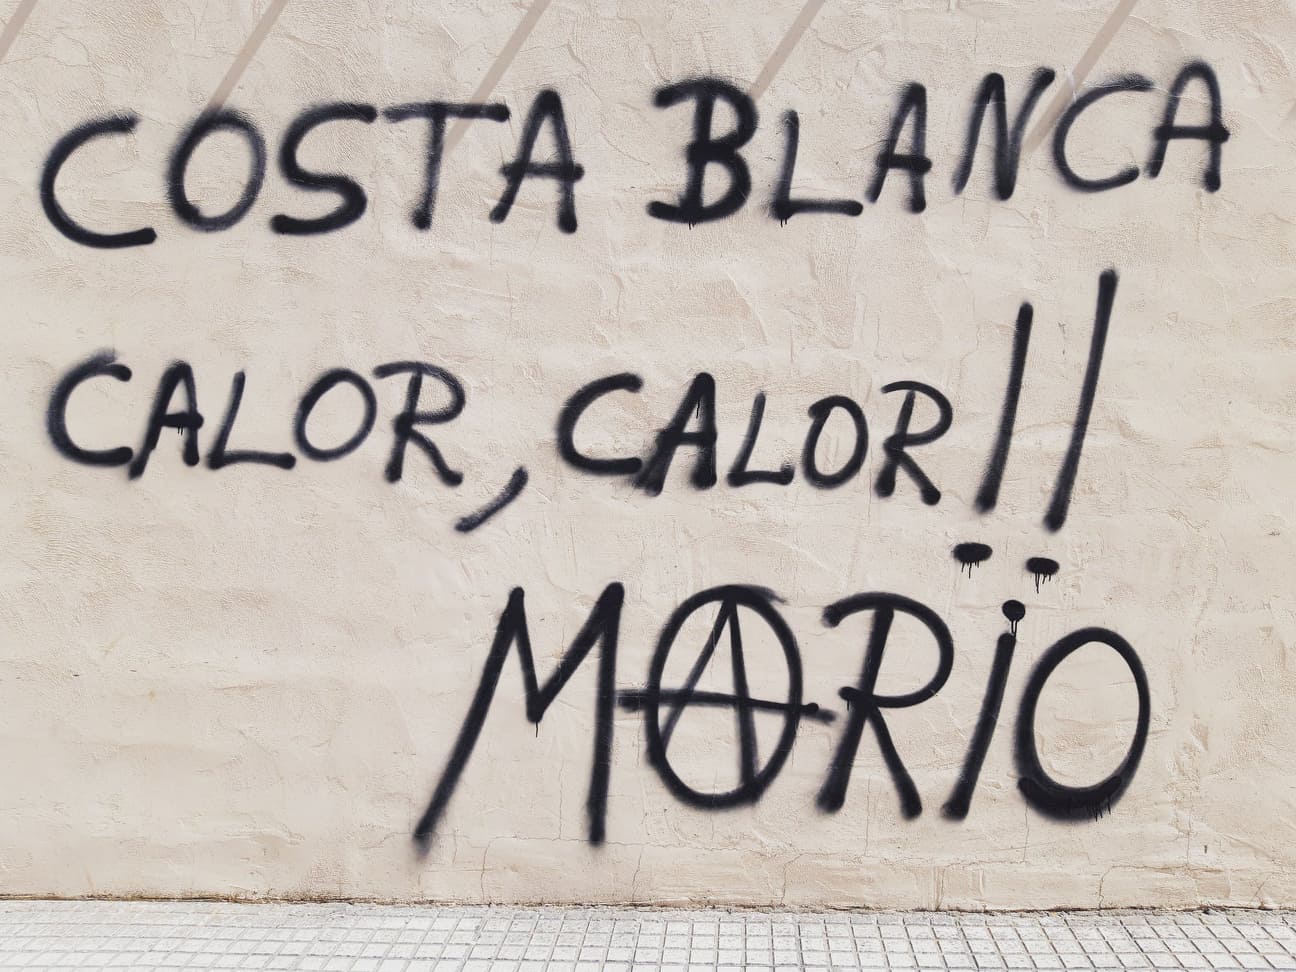 COSTA BLANCA
CALOR, CALOR!!
MARiO